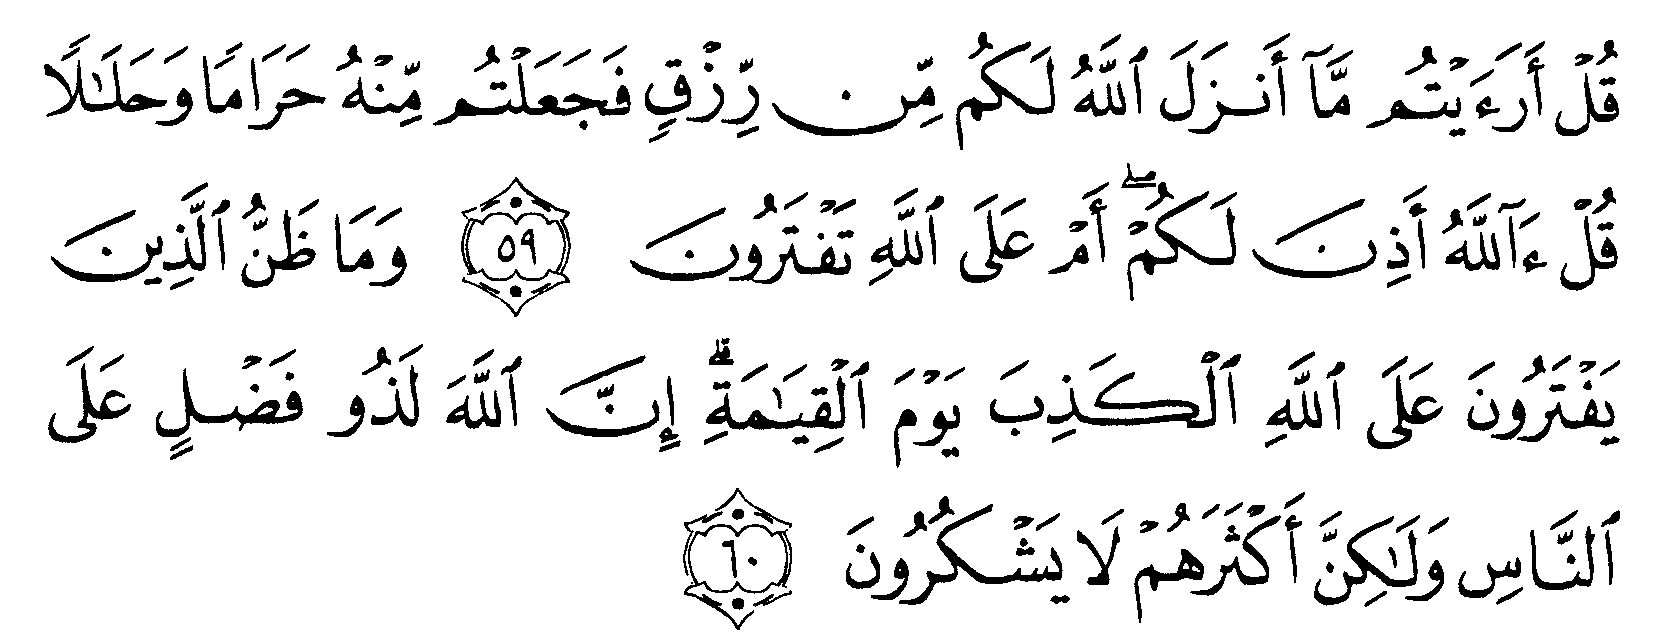 قُلْ أَرَءَيْتُم مَّآ أَنزَلَ ٱللَّهُ لَكُم مِّن رِّزْقٍ فَجَعَلْتُم مِّنْهُ حَرَامًا وَحَلَٰلًا
قُلْ ءَآللَّهُ أَذِنَ لَكُمْ ۖ أَمْ عَلَى ٱللَّهِ تَفْتَرُونَ ٥٩ وَمَا ظَنُّ ٱلَّذِينَ
يَفْتَرُونَ عَلَى ٱللَّهِ ٱلْكَذِبَ يَوْمَ ٱلْقِيَٰمَةِ ۗ إِنَّ ٱللَّهَ لَذُو فَضْلٍ عَلَى
ٱلنَّاسِ وَلَٰكِنَّ أَكْثَرَهُمْ لَا يَشْكُرُونَ ٦٠